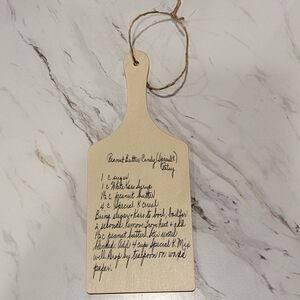 Peanut Butter Candy (Special K)
Patsy
1 c sugar
1 c White Karo Syrup
1½ c peanut butter
4 c Special K Cereal
Bring sugar & Karo to boil, boil for
2 seconds. Remove from heat & add
1½ c peanut butter. Stir until
blended. Add 4 cups Special K. Mix
well. Drop by teaspoon on waxed
paper.